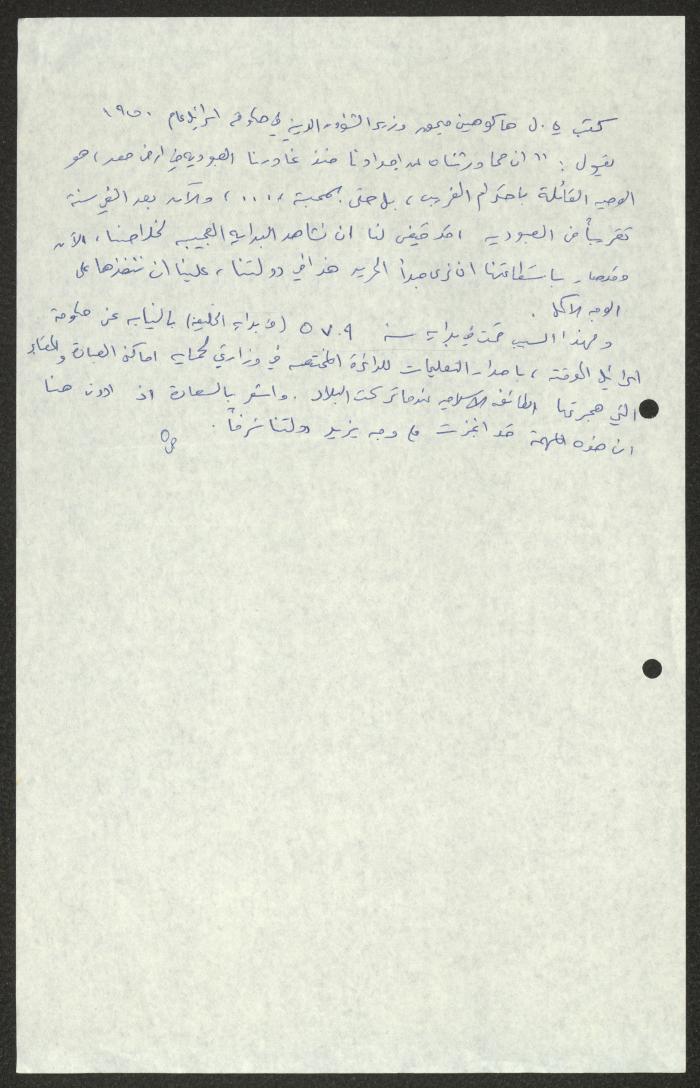 كتب ي. ل. هاكوهين ميمون وزير الشؤون الدينية في حكومة اسرائيل عام ١٩٥٠
يقول : " ان مما ورثناه عن اجدادنا منذ غادرنا العبودية في ارض مصر ، هو
الوصية القائلة باحترام الغريب ، بل حتى بمحبته ، ... ، والآن بعد الفي سنة
تقريباً من العبودية فقد قيض لنا ان نشاهد البداية العجيبة لخلاصنا ، الآن
وقد صار باستطاعتنا ان نرى مبدأ الحرية هذا في دولتنا ، علينا ان ننفذها على
الوجه الاكمل .
ولهذا السبب قمت في بداية سنة ٥٧٠٩ (من بداية الخليقة) بالنيابة عن حكومة
اسرائيل المؤقتة ، باصدار التعليمات للدائرة المختصة في وزارتي لحماية اماكن العبادة والمقابر
التي هجرتها الطائفة الاسلامية عندما تركت البلاد . واشعر بالسعادة اذ ادون هنا
ان هذه المهمة قد انجزت على وجه يزيد دولتنا شرفاً .